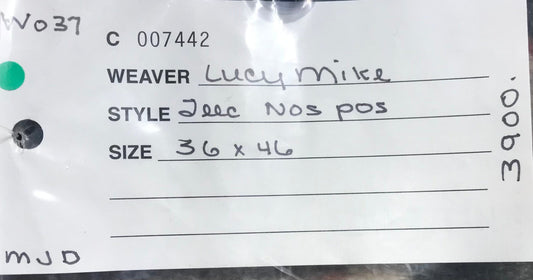 W037
C 007442
WEAVER Lucy Mike
STYLE Teec Nos pos
SIZE 36 x 46
3900.
MJD